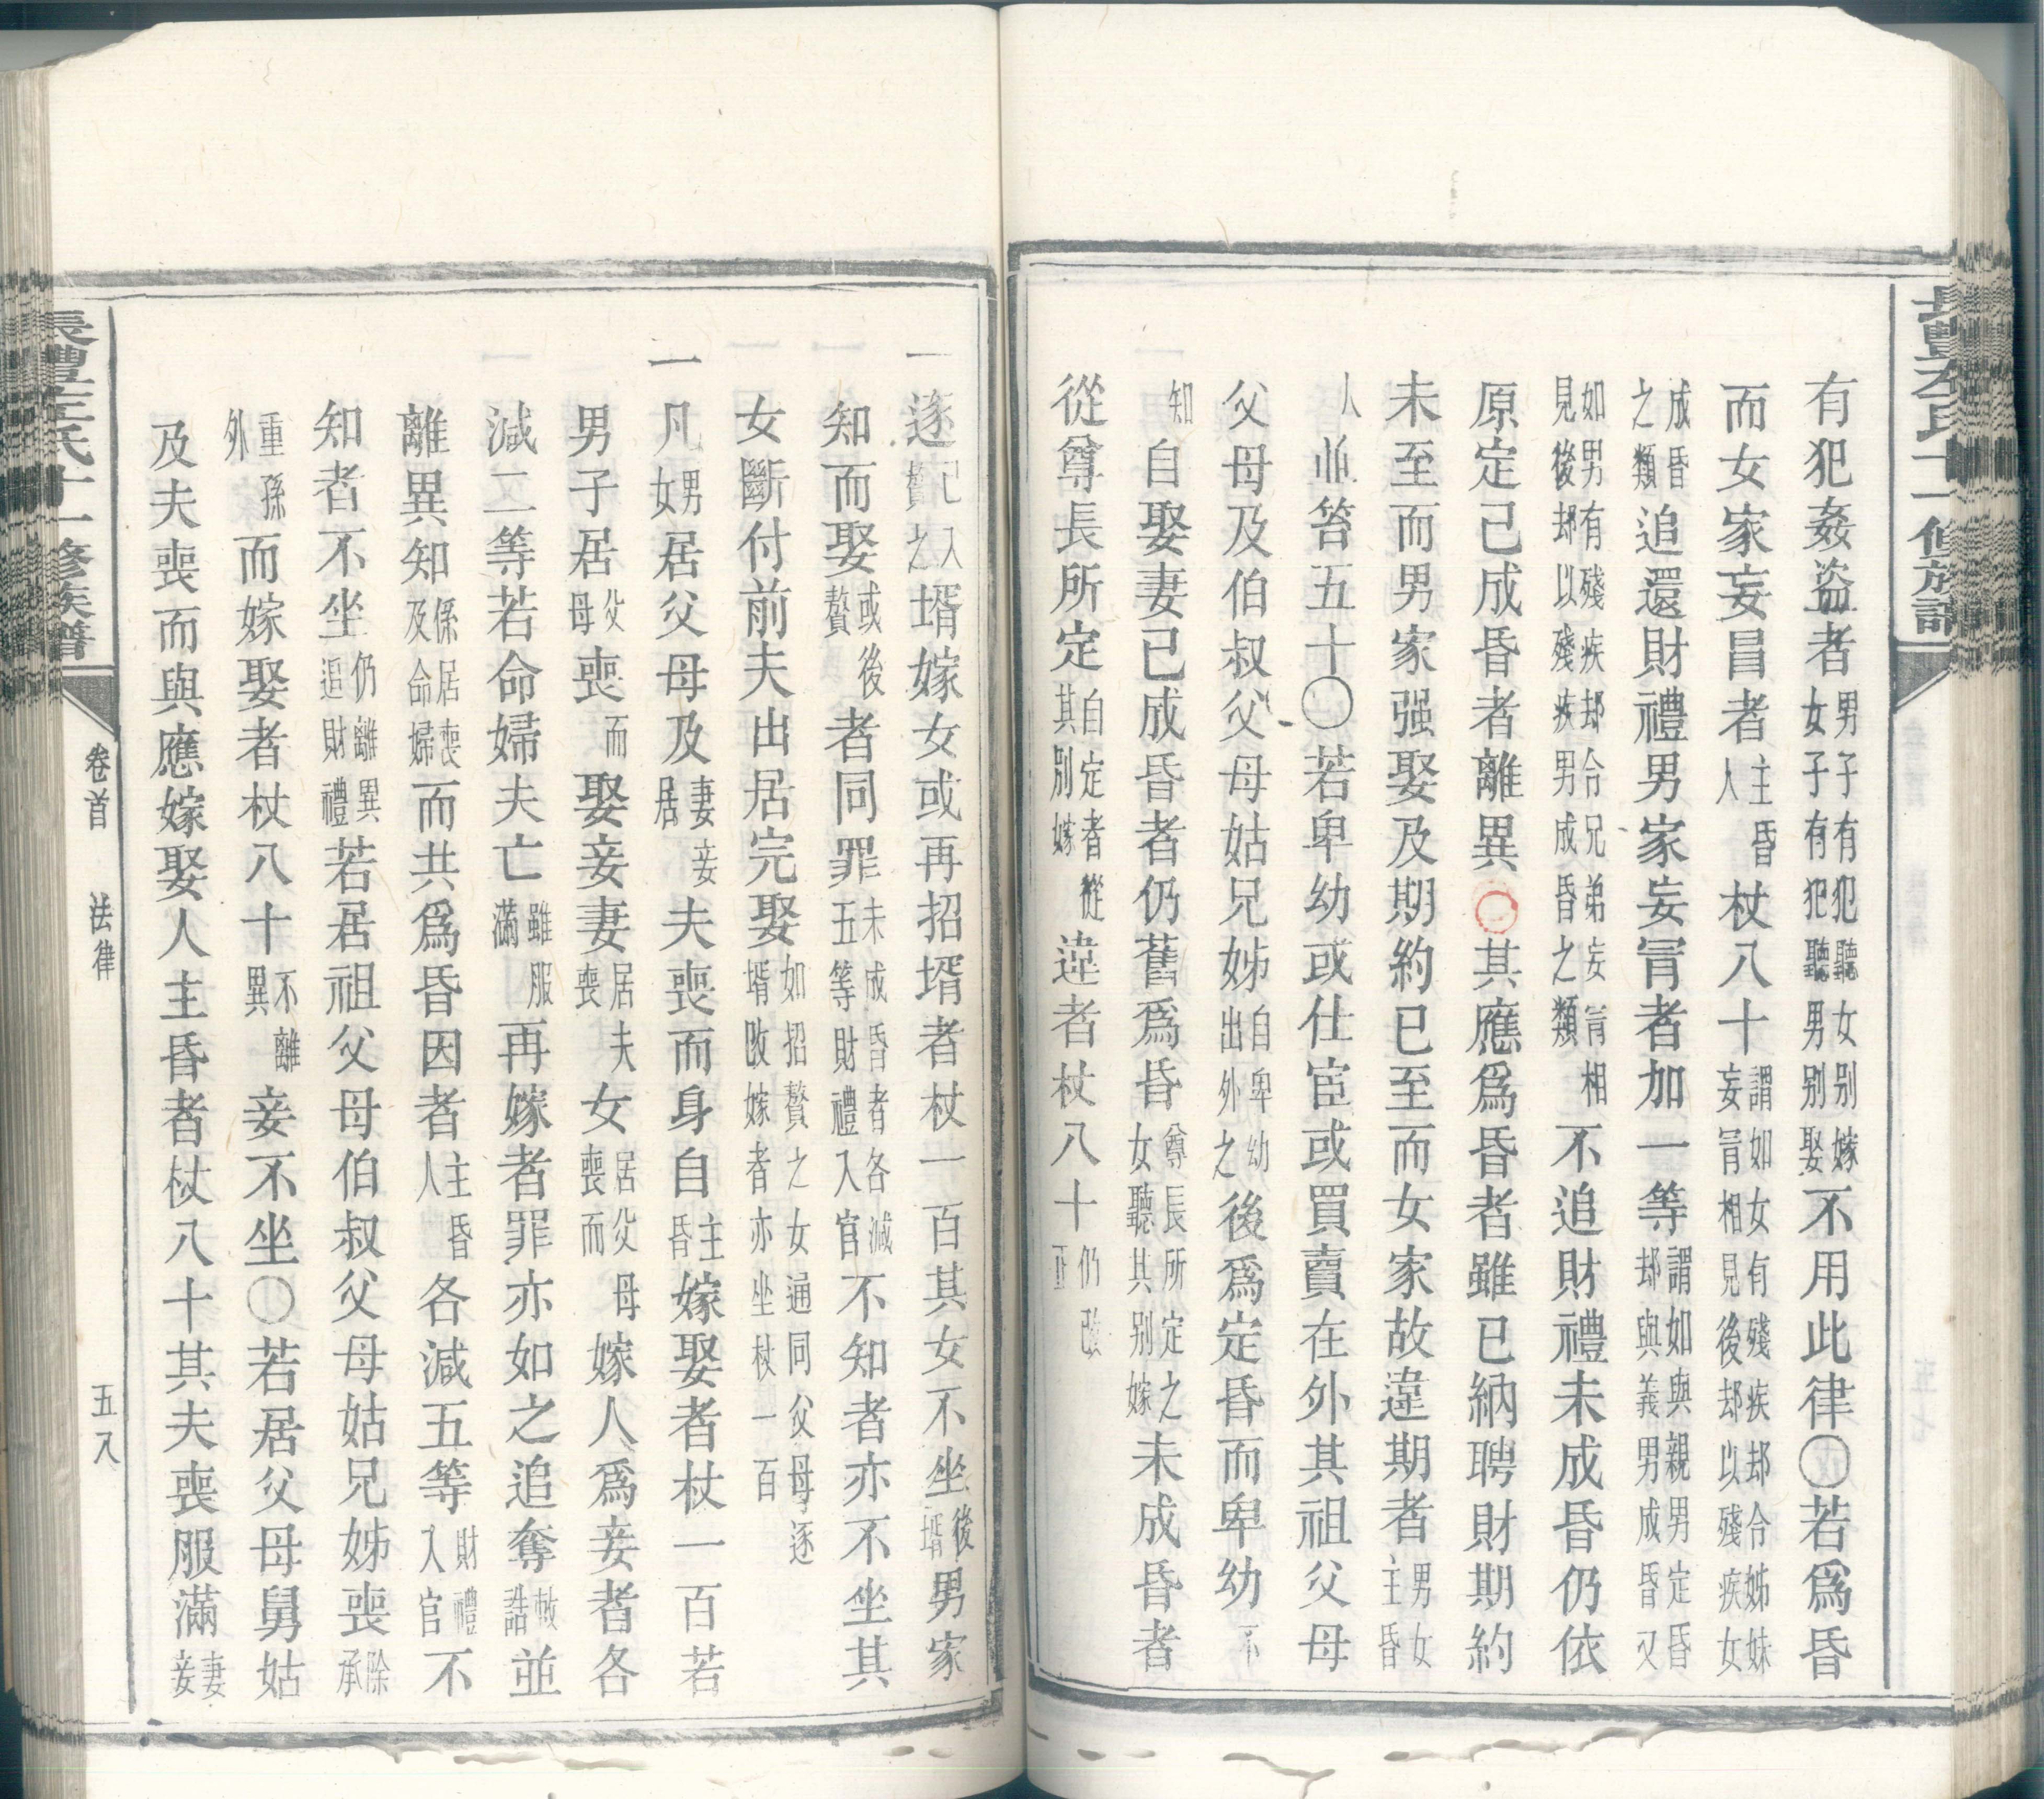 長豊左氏十一修族譜
有犯姦盜者男子有犯聽女別嫁女子有犯聽男別娶不用此律〇若爲昏
而女家妄冒者主昏人杖八十謂如女有殘疾却合姊妹妄冐相見後却以殘疾女
成昏之類追還財禮男家妄冐者加一等謂如與親男定昏却與義男成昏又
如男有殘疾却合兄弟妄冐相見後却以殘疾男成昏之類不追財禮未成昏仍依
原定已成昏者離異〇其應爲昏者雖已納聘財期約
未至而男家强娶及期約已至而女家故違期者男女主昏
人並笞五十〇若卑幼或仕宦或買賣在外其祖父母
父母及伯叔父母姑兄姊自卑幼出外之後爲定昏而卑幼不
知自娶妻已成昏者仍舊爲昏尊長所定之女聽其別嫁未成昏者
從尊長所定自定者從其別嫁違者杖八十仍改正
一逐已入贅之壻嫁女或再招壻者杖一百其女不坐後壻男家
知而娶或後贅者同罪未成昏者各減五等財禮入官不知者亦不坐其
女斷付前夫出居完娶如招贅之女通同父母逐壻改嫁者亦坐杖一百
一凡男女居父母及妻妾居夫喪而身自主昏嫁娶者杖一百若
男子居父母喪而娶妾妻居夫喪女居父母喪而嫁人爲妾者各
減二等若命婦夫亡雖服滿再嫁者罪亦如之追奪敕誥並
離異知係居喪及命婦而共爲昏因者主昏人各減五等財禮入官不
知者不坐仍離異追財禮若居祖父母伯叔父母姑兄姊喪除承
重孫外而嫁娶者杖八十不離異妾不坐〇若居父母舅姑
及夫喪而與應嫁娶人主昏者杖八十其夫喪服滿妻妾
卷首 法律 五八